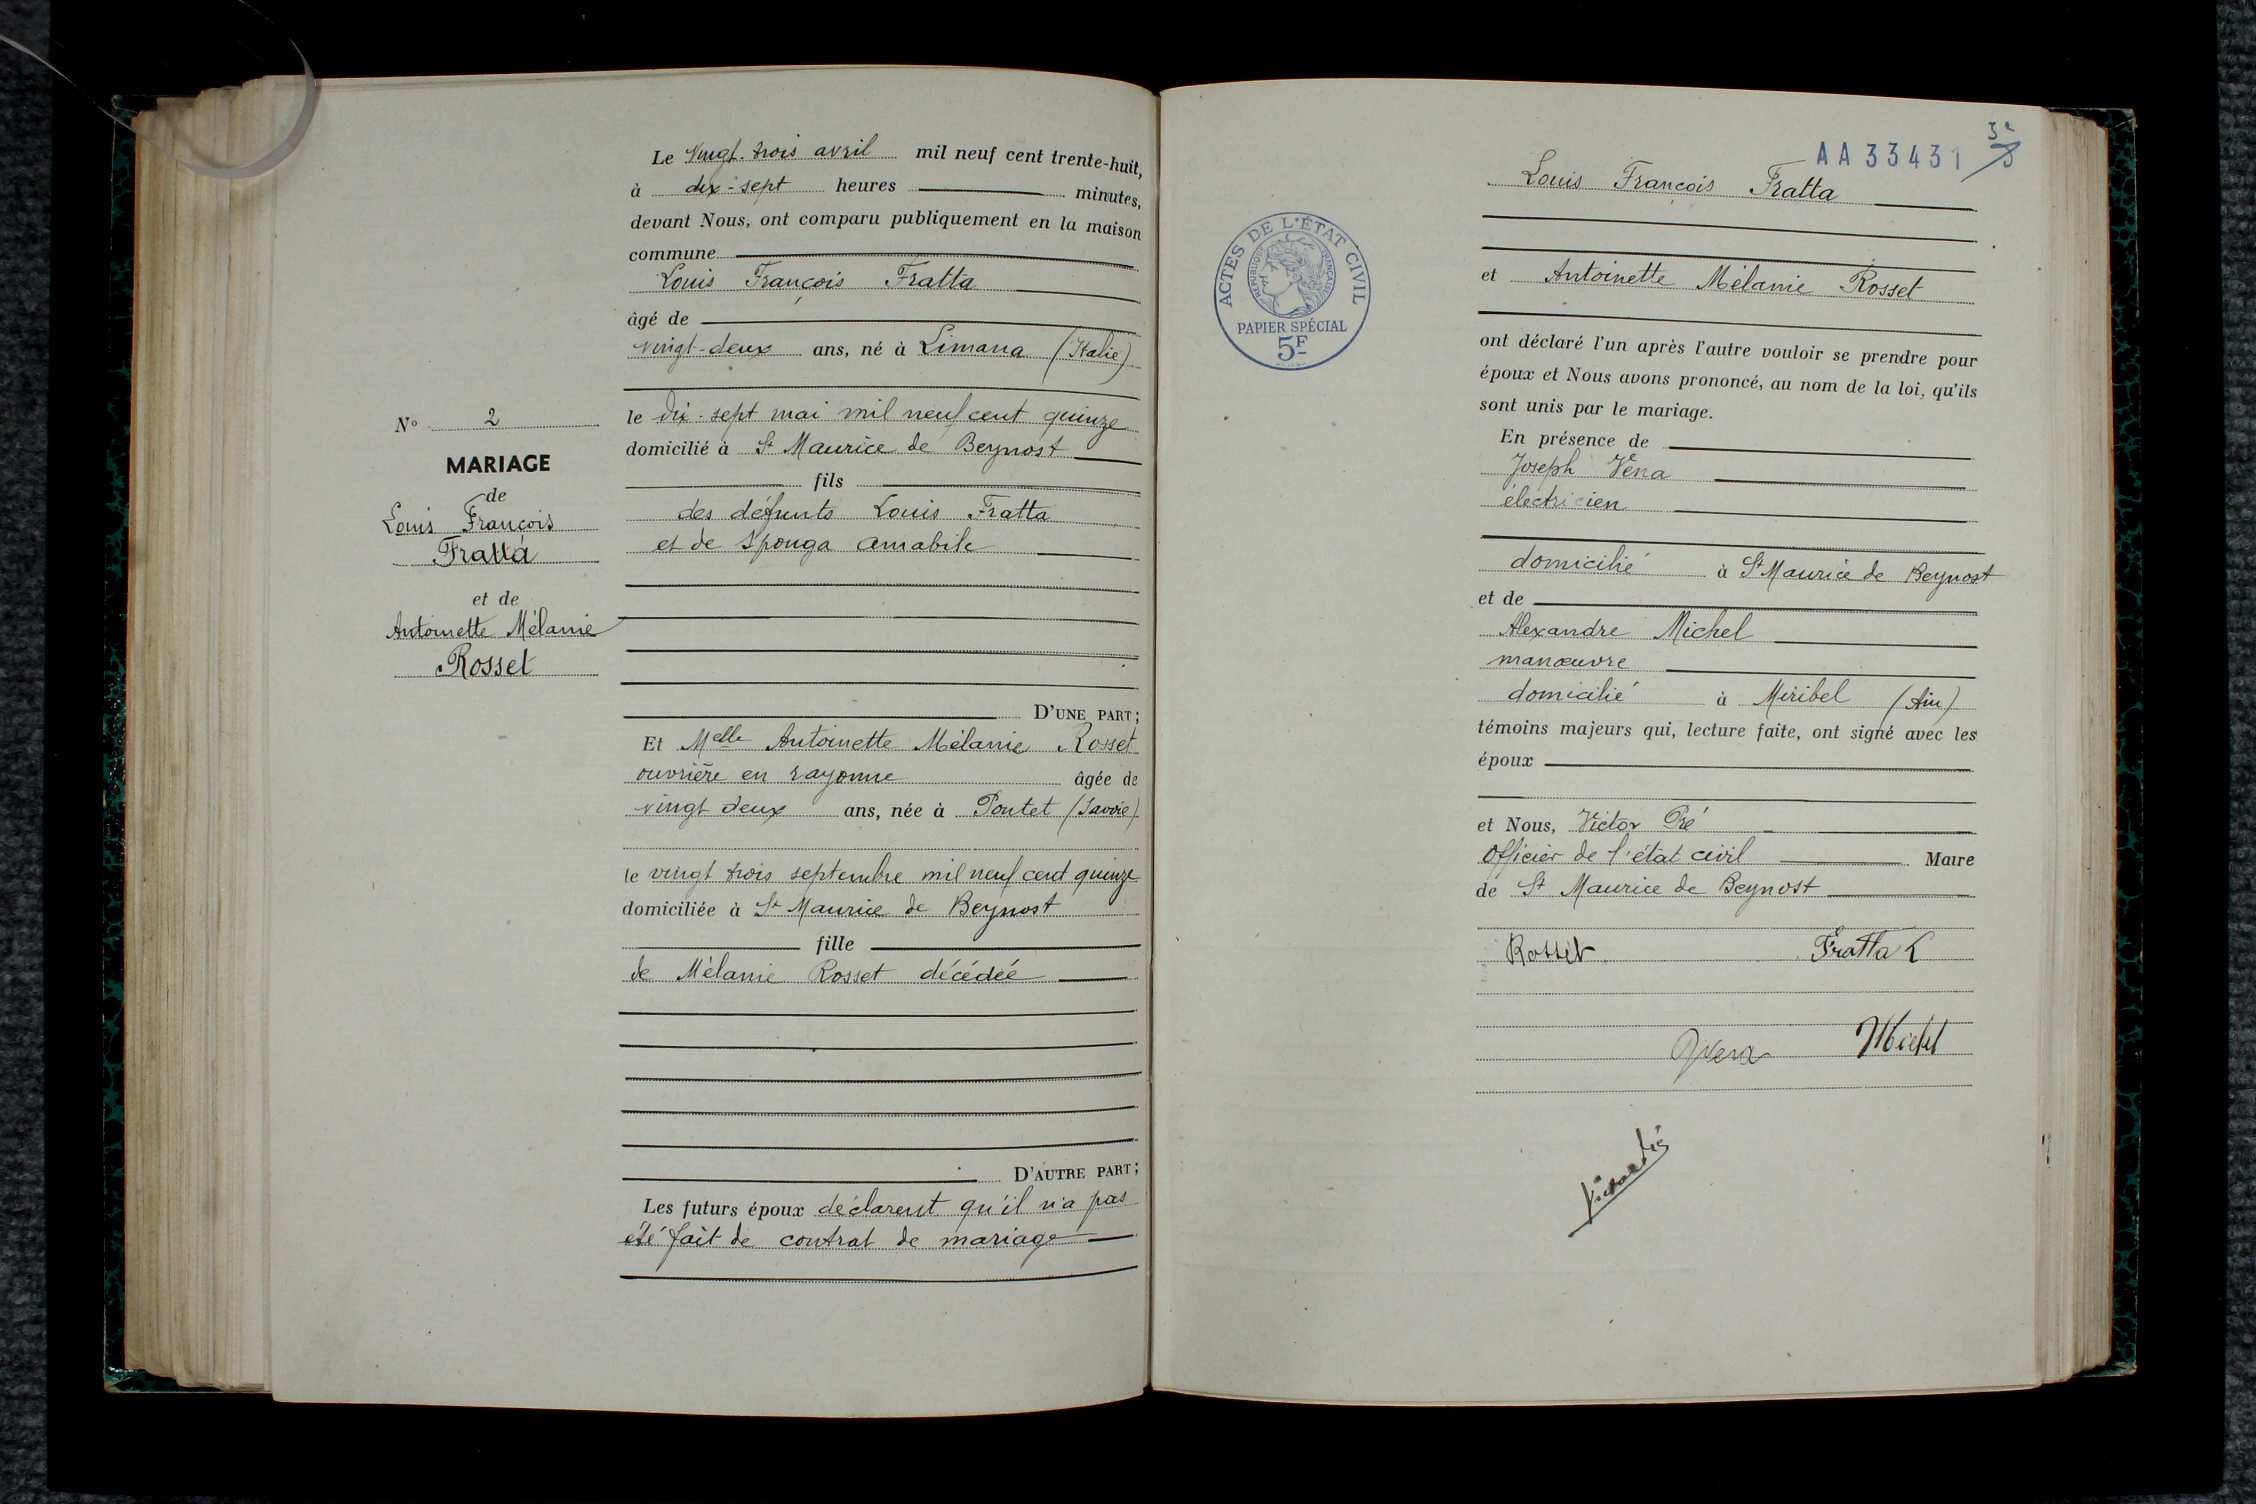 N° 2
MARIAGE
de
Louis François
Fratta
et de
Antoinette Mélanie
Rosset
Le Vingt-trois avril mil neuf cent trente-huit,
à dix-sept heures minutes,
devant Nous, ont comparu publiquement en la maison
commune
Louis François Fratta
âgé de
vingt-deux ans, né à Limana (Italie)
le dix-sept mai mil neuf cent quinze
domicilié à St Maurice de Beynost
fils
des défunts Louis Fratta
et de Sponga Amabile
D'UNE PART;
Et Melle Antoinette Mélanie Rosset
ouvrière en rayonne âgée de
vingt deux ans, née à Pontet (Savoie)
le vingt trois septembre mil neuf cent quinze
domiciliée à St Maurice de Beynost
fille
de Mélanie Rosset décédée
D'AUTRE PART;
Les futurs époux déclarent qu'il n'a pas
été fait de contrat de mariage
AA 33431
ACTES DE L'ÉTAT CIVIL
RÉPUBLIQUE FRANÇAISE
PAPIER SPÉCIAL
5F
Louis François Fratta
et Antoinette Mélanie Rosset
ont déclaré l'un après l'autre vouloir se prendre pour
époux et Nous avons prononcé, au nom de la loi, qu'ils
sont unis par le mariage.
En présence de
Joseph Véna
électricien
domicilié à St Maurice de Beynost
et de
Alexandre Michel
manœuvre
domicilié à Miribel (Ain)
témoins majeurs qui, lecture faite, ont signé avec les
époux
et Nous, Victor Pré
Officier de l'état civil Maire
de St Maurice de Beynost
Rosset Fratta L
Michel